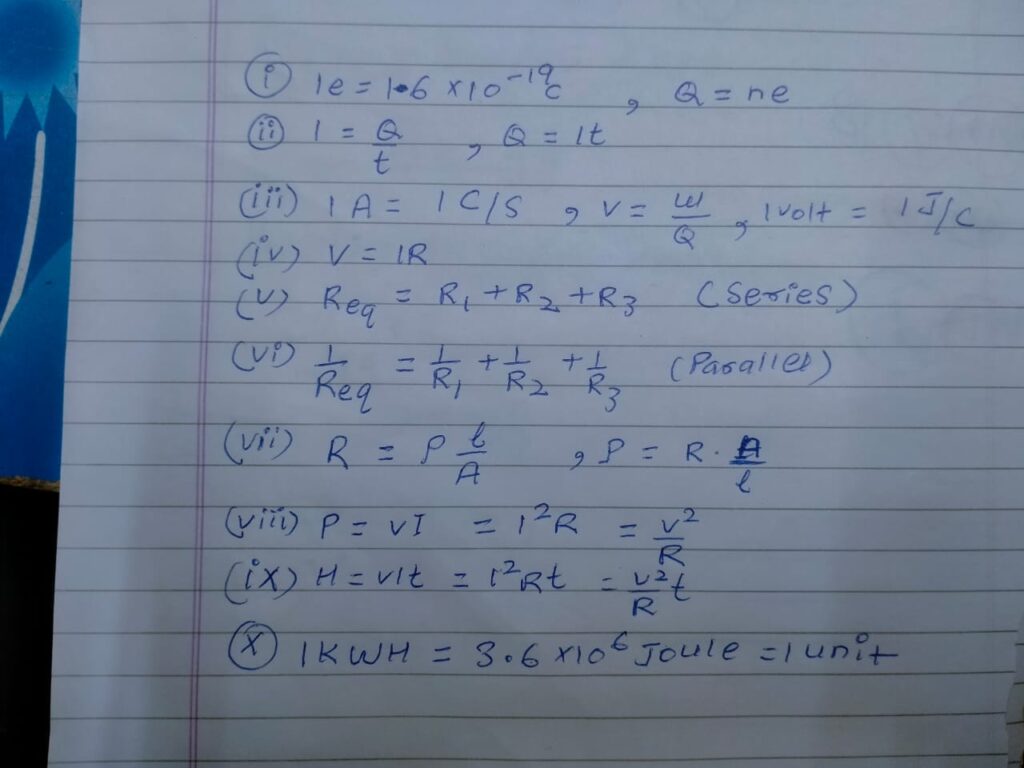 (i) 1e = 1.6 ×10⁻¹⁹ c , Q = ne
(ii) I = Q/t , Q = It
(iii) 1 A = 1 C/S , V = W/Q , 1 volt = 1 J/C
(iv) V = IR
(v) Req = R₁ + R₂ + R₃ (Series)
(vi) 1/Req = 1/R₁ + 1/R₂ + 1/R₃ (Parallel)
(vii) R = ρ l/A , ρ = R · A/l
(viii) P = VI = I²R = V²/R
(ix) H = VIt = I²Rt = V²/R t
(x) 1 KWH = 3.6 ×10⁶ Joule = 1 unit